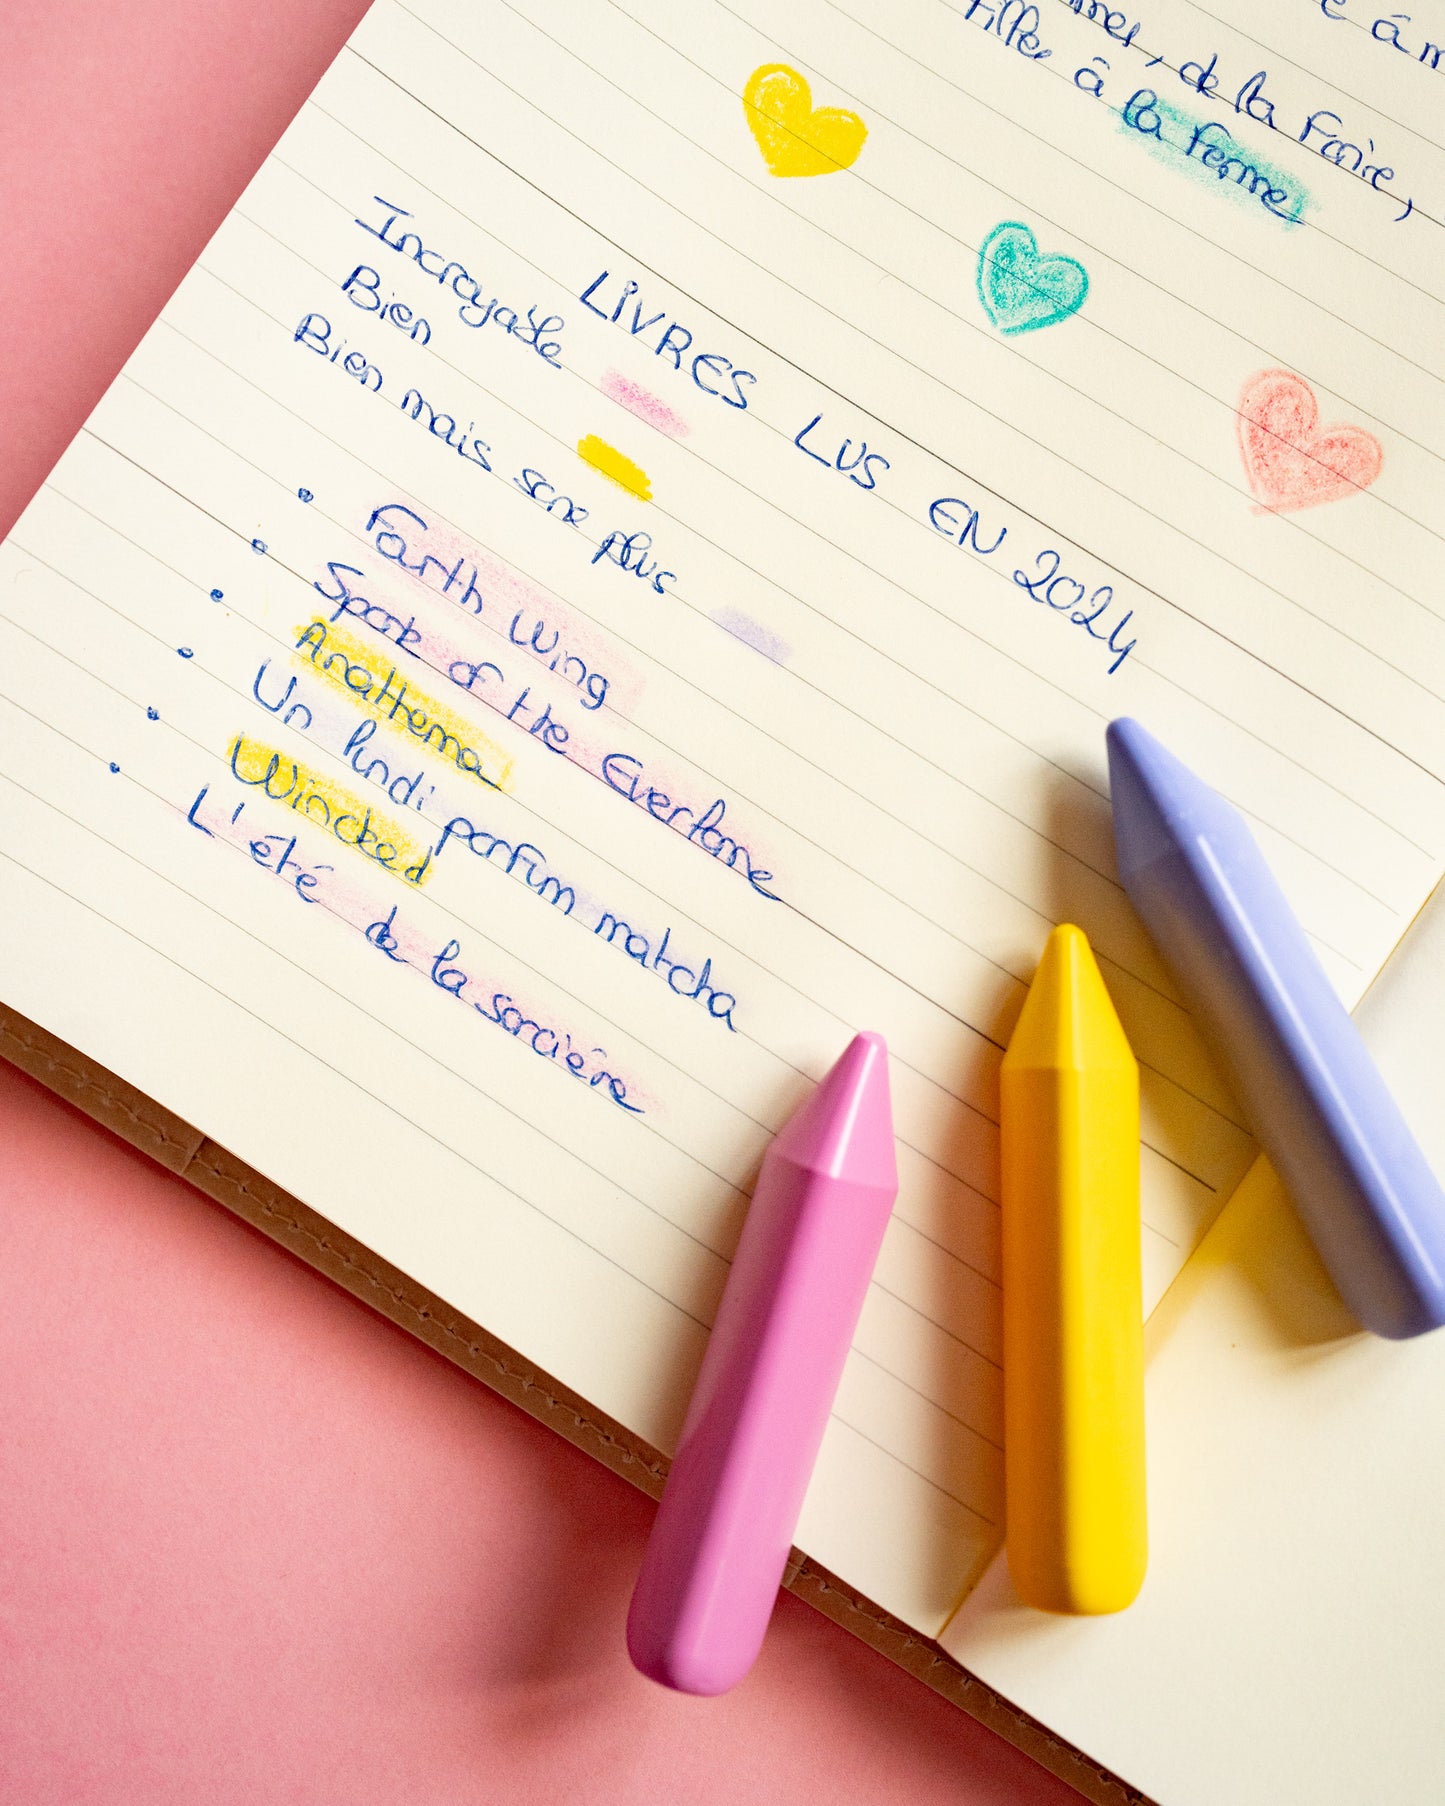 à
, de la Foire,
à la ferme
LiVRES LUS EN 2024
Incroyable
Bien
Bien mais sans plus
Fourth Wing
Spark of the Everflame
Anathema
Un lundi parfum matcha
Wincked
L'été de la sorcière